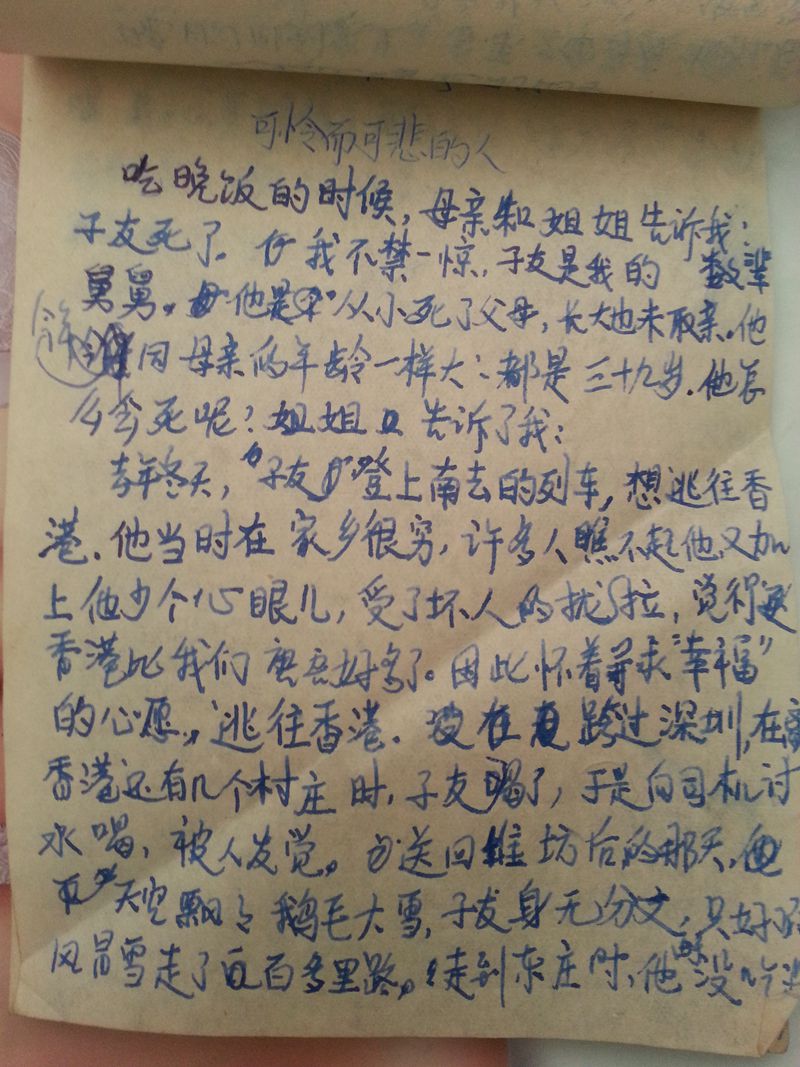 可怜而可悲的人
吃晚饭的时候，母亲和姐姐告诉我：
子友死了。我不禁一惊，子友是我的
舅舅。他是从小死了父母，长大也未取亲。他
同母亲的年龄一样大：都是三十九岁。他怎
么会死呢？姐姐告诉了我：
去年冬天，子友登上南去的列车，想逃往香
港。他当时在家乡很穷，许多人瞧不起他，又加
上他少个心眼儿，受了坏人的拉，觉得
香港比我们好多了。因此怀着寻求“幸福”
的心愿，逃往香港。跨过深圳，在离
香港还有几个村庄时，子友喝了，于是向司机讨
水喝，被人发觉。送回潍坊后的那天，
天空飘了鹅毛大雪，子友身无分文，只好
风冒雪走了百多里路。走到东庄时，他没吃